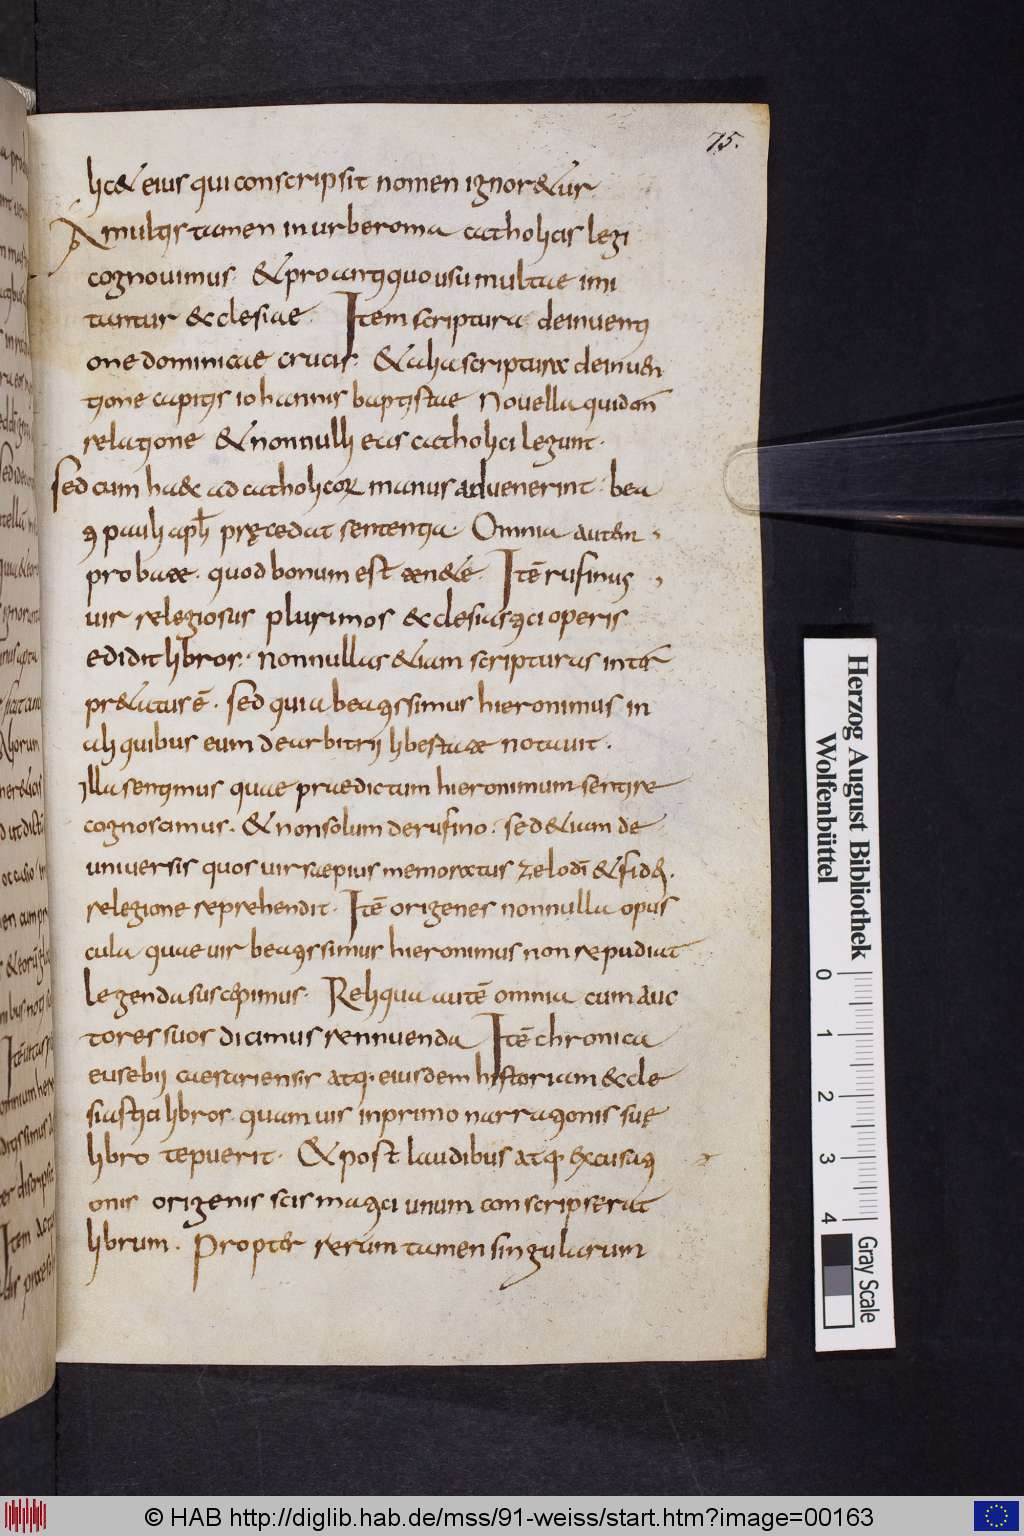 75.
lic& eius qui conscripsit nomen ignor&ur
A multis tamen in urbe roma catholicis legi
cognouimus. & pro antiquo usu multae imi
tantur ecclesiae Item scriptura deinuenti
one dominicae crucis. & alia scriptura deinuen
tione capitis iohannis baptistae Nouella quidam
relatione & nonnulli eas catholici legunt.
Sed cum haec ad catholicorum manus aduenerint. bea
ti pauli apli precedat sententia. Omnia autem
probate. quod bonum est ten&e. Itē rufinus
uir relegiosus plurimos ecclesiastici operis
edidit libros. nonnullas &iam scripturas inter
pr&atus ē. sed quia beatissimus hieronimus in
alii quibus eum de arbitrii libertate notauit.
Illa sentimus quae praedictum hieronimum sentire
cognoscimus. & non solum de rufino. sed &iam de
uniuersis quos uir saepius memoratus zelo di & fidei.
relegione reprehendit. Itē origenes nonnulla opus
cula quae uir beatissimus hieronimus non repudiat
legenda suscepimus. Reliqua autē omnia cum auc
tores suos dicimus rennuenda Itē chronica
eusebii caesariensis atq. eiusdem historiam eccle
siastici libros. quam uis inprimo narrationis suę
libro tepuerit. & post laudibus atq. excusati
onis origenis scismatici unum conscripserat
librum. Propter rerum tamen singularum
Herzog August Bibliothek
Wolfenbüttel
0 1 2 3 4
Gray Scale
© HAB http://diglib.hab.de/mss/91-weiss/start.htm?image=00163